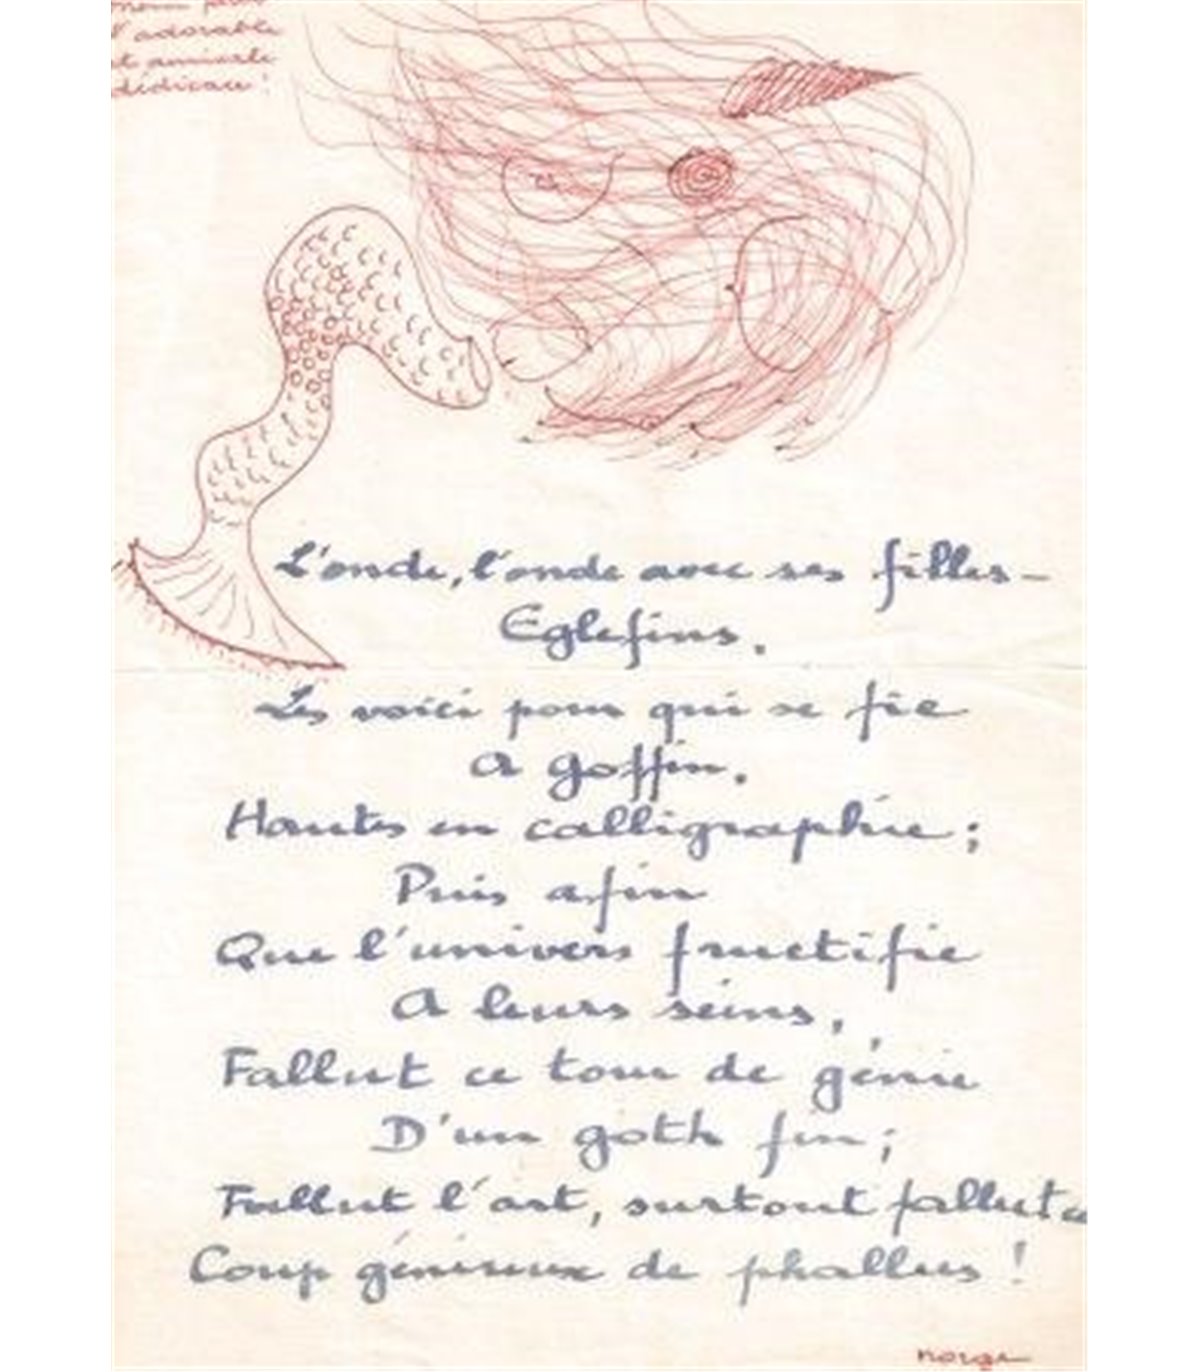 pour
l'adorable
et amicale
dédicace !
L'onde, l'onde avec ses filles-
Eglefins.
Les voici pour qui se fie
A Goffin.
Hautes en calligraphie ;
Puis afin
Que l'univers fructifie
A leurs seins,
Fallut ce tour de génie
D'un goth fin ;
Fallut l'art, surtout fallut ce
Coup généreux de phallus !
norge